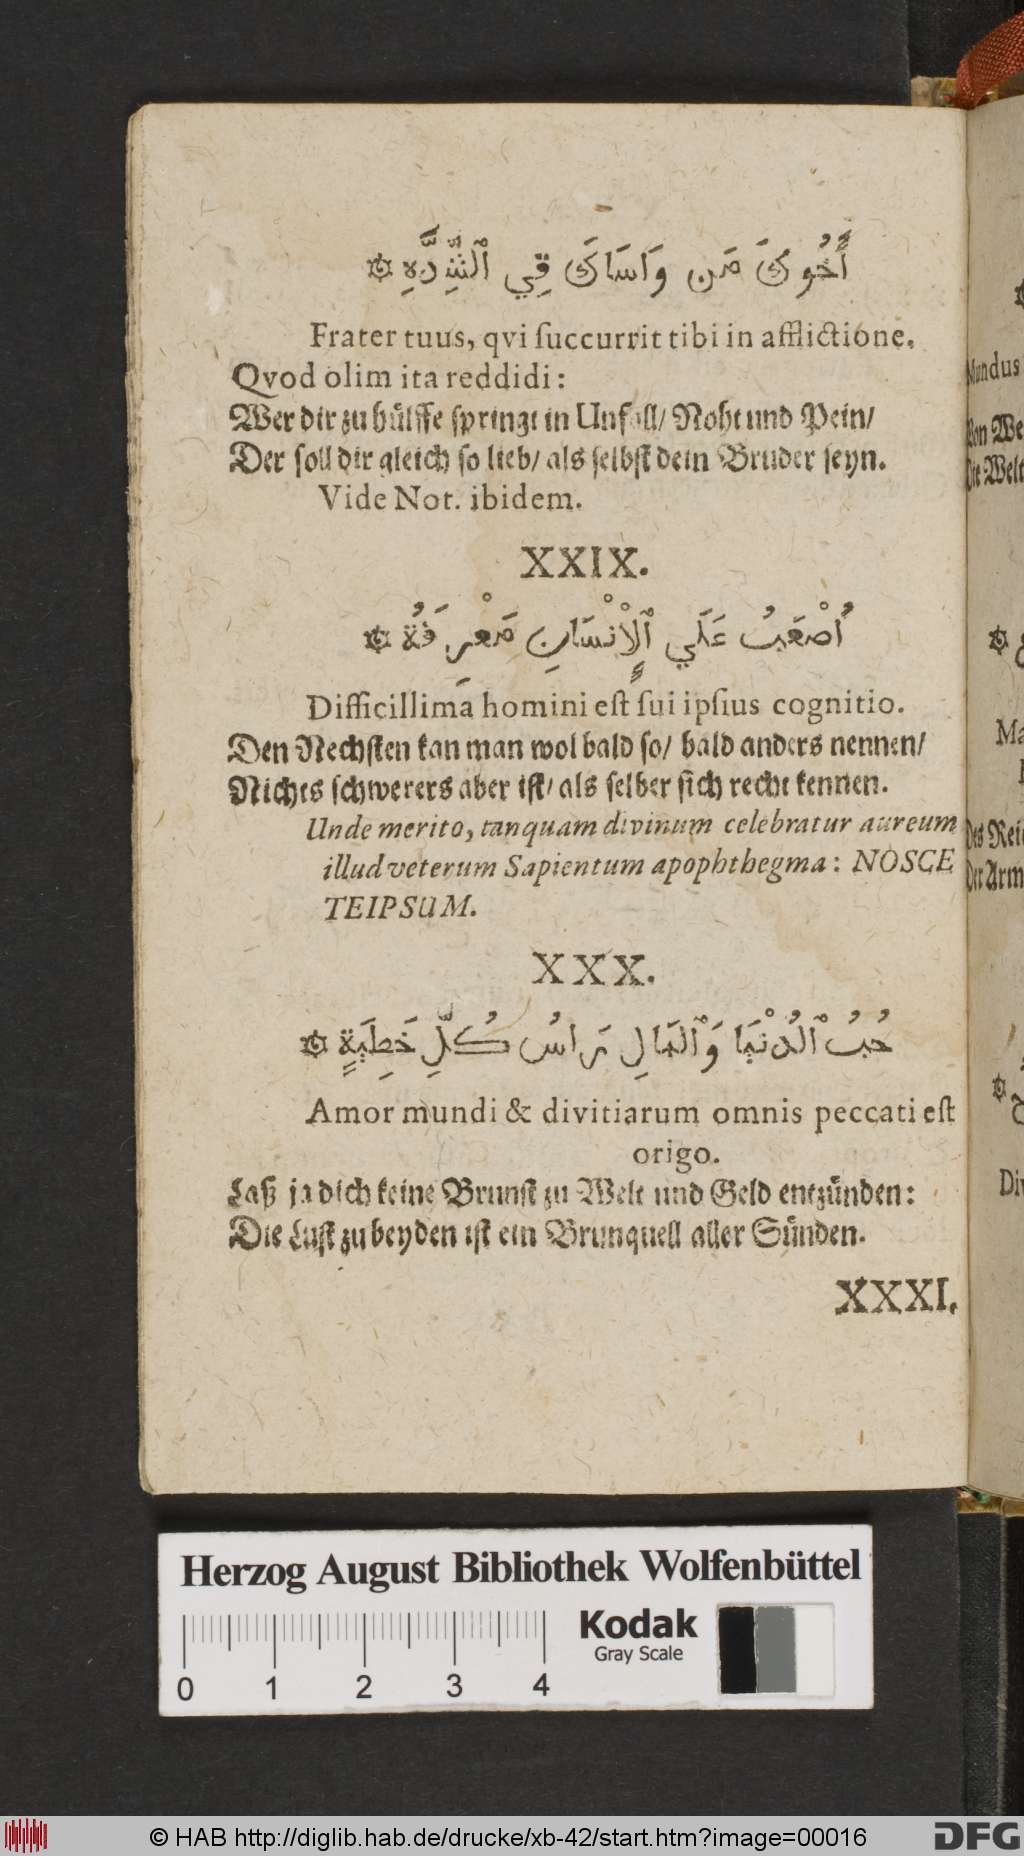 أَخُوكَ مَن وَاسَاكَ فِي ٱلشِّدَّهِ ۞
Frater tuus, qvi ſuccurrit tibi in afflictione.
Qvod olim ita reddidi:
Wer dir zu huͤlffe ſpringt in Unfall/ Noht und Pein/
Der ſoll dir gleich ſo lieb/ als ſelbſt dein Bruder ſeyn.
Vide Not. ibidem.
XXIX.
أُصْعَبُ عَلَي ٱلْإِنْسَانِ مَعْرِفَةُ ۞
Difficillima homini eſt ſui ipſius cognitio.
Den Nechſten kan man wol bald ſo/ bald anders nennen/
Nichts ſchwerers aber iſt/ als ſelber ſich recht kennen.
Unde merito, tanquam divinum celebratur aureum
illud veterum Sapientum apophthegma: NOSCE
TEIPSUM.
XXX.
حُبُ ٱلدُنْيَا وَٱلمَالِ رَاسُ كُلِّ خَطِيَةٍ ۞
Amor mundi & divitiarum omnis peccati eſt
origo.
Laß ja dich keine Brunſt zu Welt und Geld entzuͤnden:
Die Luſt zu beyden iſt ein Brunquell aller Suͤnden.
XXXI.
Mundus
Von We
Die Welt
Ma
Des Rei
Der Arm
Div
Herzog August Bibliothek Wolfenbüttel
Kodak
Gray Scale
0 1 2 3 4
© HAB http://diglib.hab.de/drucke/xb-42/start.htm?image=00016
DFG